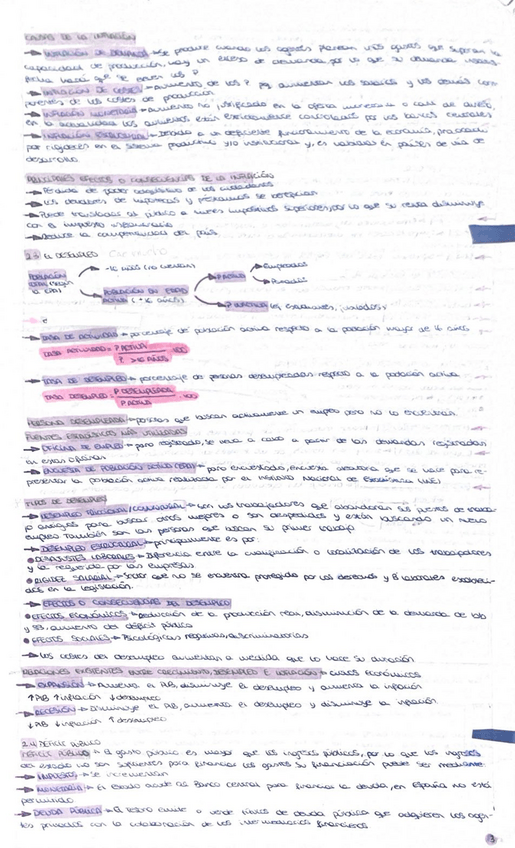 CAUSAS DE LA INFLACIÓN
→ INFLACIÓN DE DEMANDA → se produce cuando los agentes planean unos gastos que superan la
capacidad de producción, hay un exceso de demanda, por lo que su demanda
hará que se eleven los P
→ INFLACIÓN DE COSTES → aumento de los P por aumentar los salarios y los demás com-
ponentes de los costes de producción
→ INFLACIÓN MONETARIA → aumento no justificado en la oferta monetaria o cant de dinero,
en la actualidad los aumentos están controlados por los bancos centrales
→ INFLACIÓN ESTRUCTURAL → Debido a un deficiente funcionamiento de la economía, provocado
por rigideces en el sistema productivo y/o institucional y, es en países de vía de
desarrollo.
PRINCIPALES EFECTOS O CONSECUENCIAS DE LA INFLACIÓN
→ Pérdida de poder adquisitivo de los ciudadanos
→ Los deudores de hipotecas y préstamos se benefician
→ Puede trasladar al público a tramos impositivos superiores, por lo que su renta disminuye
con el impuesto
→ Reduce la competitividad del país
2.3 EL DESEMPLEO
POBLACIÓN
TOTAL (según
la EPA)
-16 años (no cuentan)
POBLACIÓN EN EDAD
ACTIVA (+16 años)
P ACTIVA
Empleados
Parados
P INACTIVA (ej estudiantes, jubilados)
→ TASA DE ACTIVIDAD → porcentaje de población activa respecto a la población mayor de 16 años
TASA ACTIVIDAD = P ACTIVA / P. >16 AÑOS · 100
→ TASA DE DESEMPLEO → porcentaje de personas desempleadas respecto a la población activa
TASA DESEMPLEO = P DESEMPLEADA / P ACTIVA · 100
PERSONA DESEMPLEADA → personas que buscan activamente un empleo pero no lo encuentran.
FUENTES ESTADÍSTICAS MÁS UTILIZADAS
→ OFICINA DE EMPLEO → paro registrado, se lleva a cabo a partir de las demandas registradas
en estas oficinas
→ ENCUESTA DE POBLACIÓN ACTIVA (EPA) → paro encuestado, encuesta que se hace para re-
presentar la población activa realizada por el Instituto Nacional de Estadística (INE)
TIPOS DE DESEMPLEO
→ DESEMPLEO FRICCIONAL → son los trabajadores que abandonan sus puestos de traba-
jo antiguos para buscar otros mejores o son despedidos y están buscando un nuevo
empleo. También son las personas que buscan su primer trabajo
→ DESEMPLEO ESTRUCTURAL → principalmente es por:
● DESAJUSTES LABORALES → Diferencia entre la cualificación o localización de los trabajadores
y la requerida por las empresas
● RIGIDEZ SALARIAL → que no se encuentra protegida por los derechos y laborales estableci-
dos en la legislación.
→ EFECTOS O CONSECUENCIAS DEL DESEMPLEO
● EFECTOS ECONÓMICOS → reducción de la producción real, disminución de la demanda de b
y ss, aumento del déficit público
● EFECTOS SOCIALES → Psicológicas negativas, discriminatorias
→ Los costes del desempleo aumentan a medida que lo hace su duración
RELACIONES EXISTENTES ENTRE CRECIMIENTO, DESEMPLEO E INFLACIÓN → CICLOS ECONÓMICOS
→ EXPANSIÓN → Aumenta el PIB, disminuye el desempleo y aumenta la inflación
↑ PIB ↑ inflación ↓ desempleo
→ RECESIÓN → Disminuye el PIB, aumenta el desempleo y disminuye la inflación
↓ PIB ↓ inflación ↑ desempleo
2.4 DÉFICIT PÚBLICO
DÉFICIT PÚBLICO → El gasto público es mayor que los ingresos públicos, por lo que los ingresos
del estado no son suficientes para financiar los gastos. Su financiación puede ser mediante:
→ IMPUESTOS → Se incrementan
→ MONETARIA → El Estado acude al Banco central para financiar la deuda, en España no está
permitido
→ DEUDA PÚBLICA → El tesoro emite o vende títulos de deuda pública que adquieren los agen-
tes privados con la colaboración de los intermediarios financieros
3